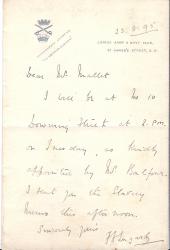 23.8.95
JUNIOR ARMY & NAVY CLUB,
ST JAMES'S STREET, S.W.
Dear Mr. Mallet
I will be at No 10
Downing Street at 2. P.M.
on Tuesday, as kindly
appointed by Mr Balfour.
I sent you the Slavery
Memo this afternoon.
Sincerely yours